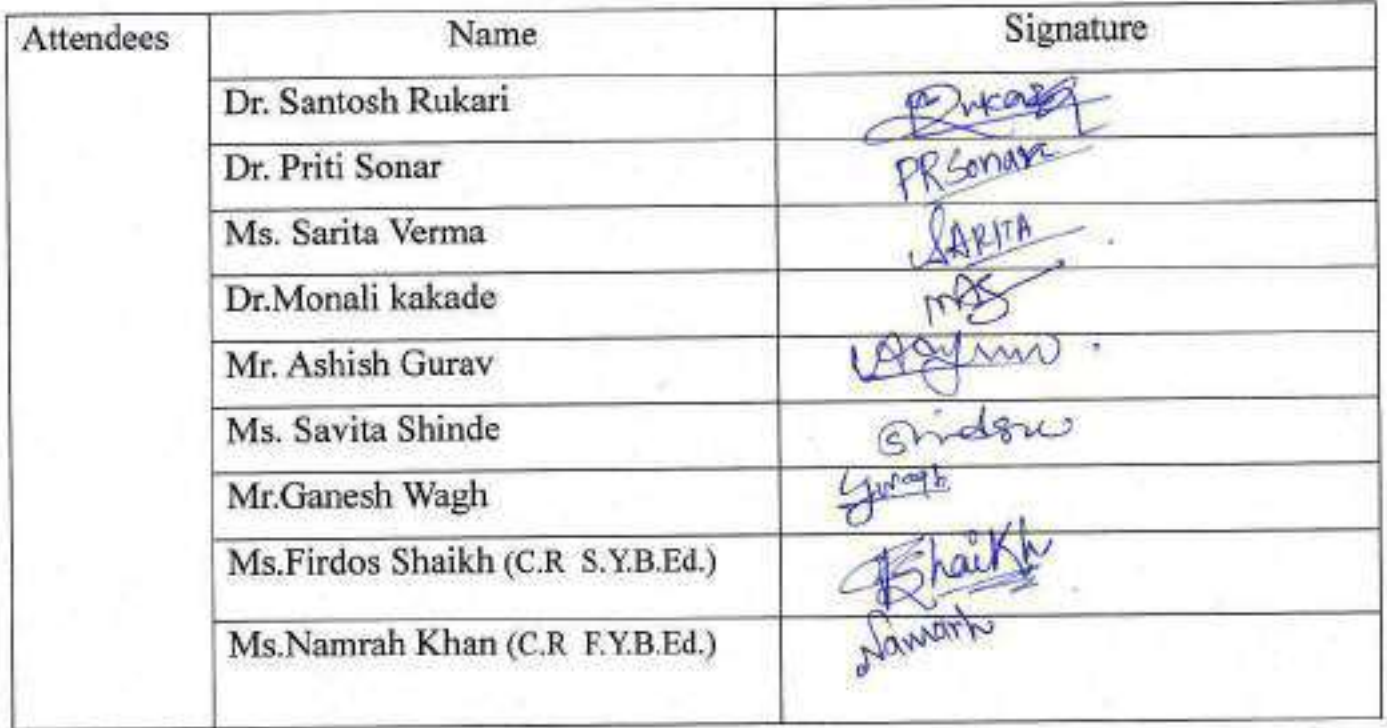 Attendees Name Signature
Dr. Santosh Rukari
Dr. Priti Sonar PRSonar
Ms. Sarita Verma SARITA
Dr.Monali kakade
Mr. Ashish Gurav
Ms. Savita Shinde
Mr.Ganesh Wagh
Ms.Firdos Shaikh (C.R S.Y.B.Ed.) Shaikh
Ms.Namrah Khan (C.R F.Y.B.Ed.) Namrah